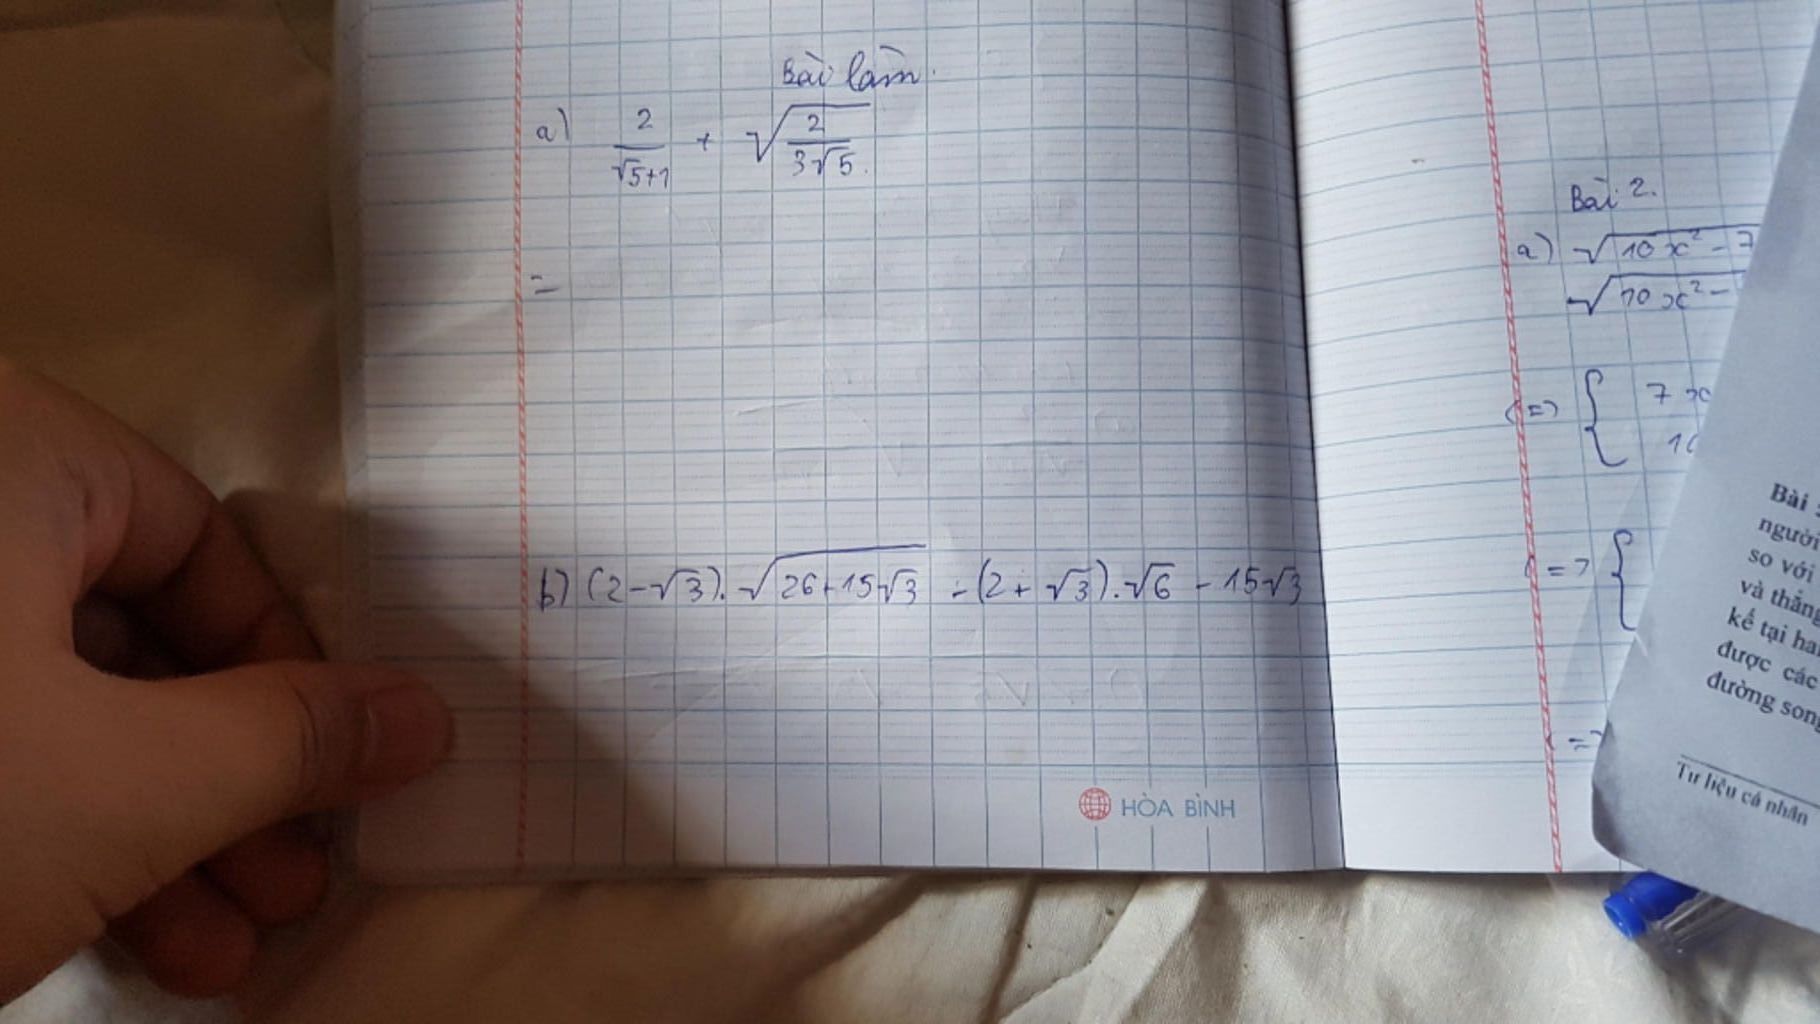 Bài làm.
a) 2/(√5+1) + √(2/(3√5))
=
b) (2-√3).√(26+15√3) - (2+√3).√6 - 15√3
HÒA BÌNH
Bài 2.
a) √10x² - 7
√10x² -
<=> { 7x
10
<=> {
<=>
Bài
người
so với
và thẳng
kế tại hai
được các
đường song
Tư liệu cá nhân